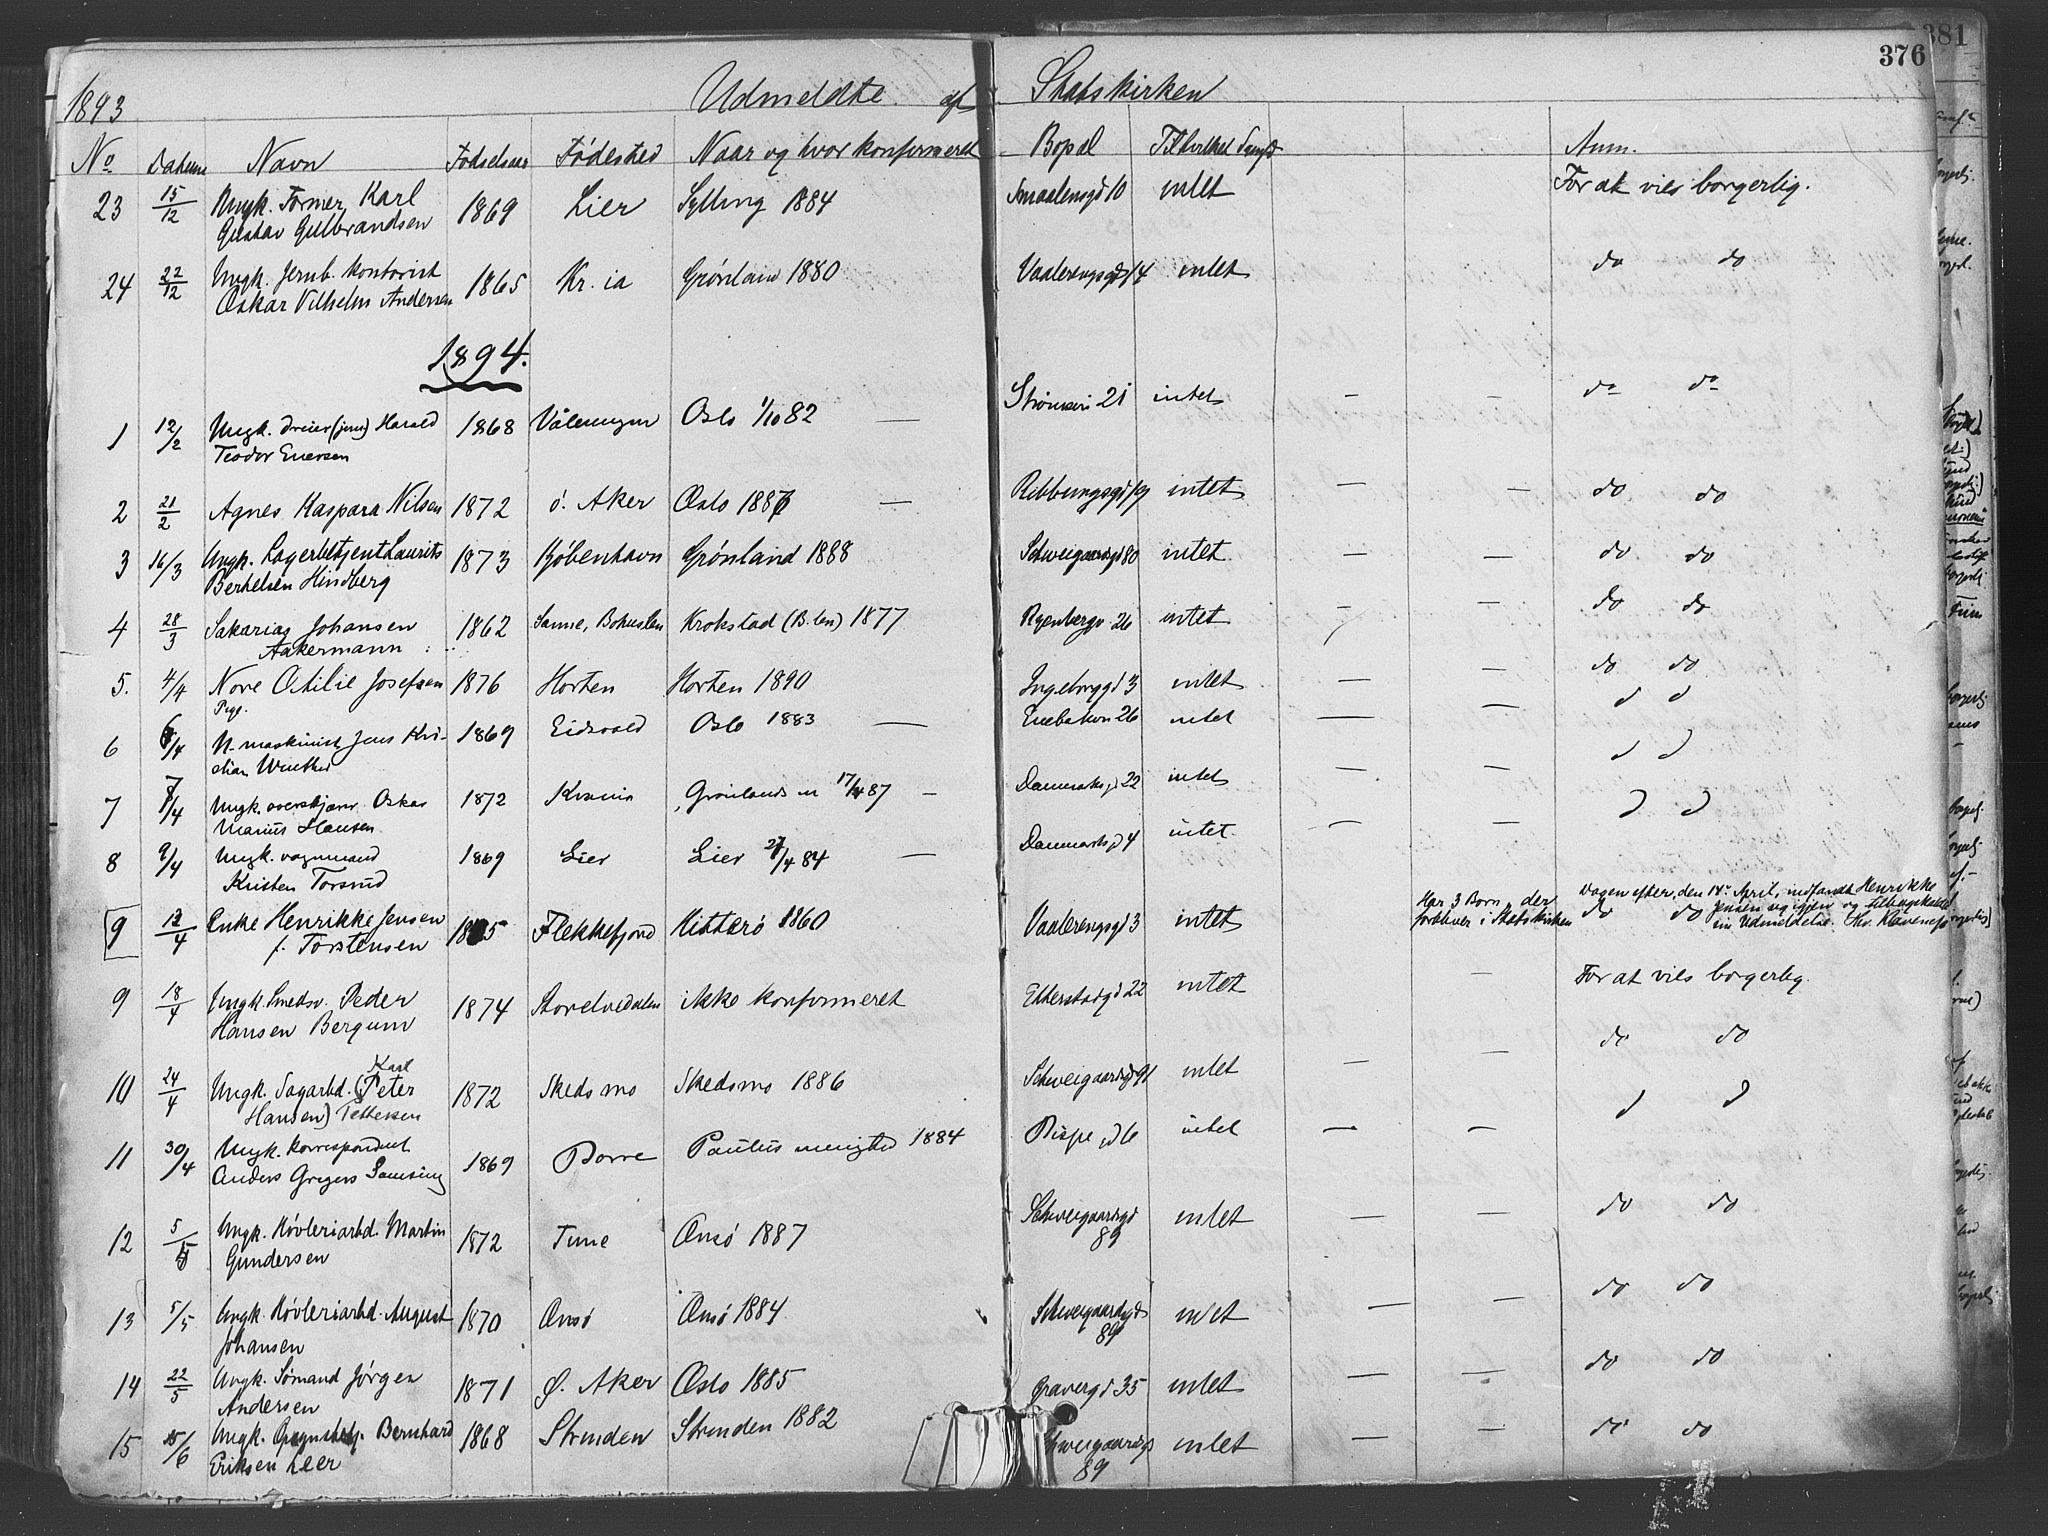 381
376
1893 Udmeldte af Statskirken
No Datum Navn Fødselsaar Fødested Naar og hvor konfirmeret Bopæl Til hvilket Samfd Anm.
23 15/12 Ungk. Former Karl 1869 Lier Sylling 1884 Smaalensgd 10 intet For at vies borgerlig.
Gustav Gulbrandsen
24 22/12 Ungk. Jernb. kontorist 1865 Kr.ia Grønland 1880 Vaalerengsgd 14 intet do do
Oskar Vilhelm Andersen
1894.
1 12/2 Ungk. dreier (jern) Harald 1868 Vålerengen Oslo 1/10 82 — Strømsvn 21 intet — — do do
Teodor Enersen
2 21/2 Agnes Kaspara Nilsen 1872 Ø. Aker Oslo 1886 — Ribbungsgd 19 intet — — do do
3 16/3 Ungk. Lagerbetjent Laurits 1873 Kjøbenhavn Grønland 1888 Schweigaardsgd 80 intet — — do do
Berthelsen Hindberg
4 28/3 Sakarias Johansen 1862 Sanne, Bohuslen Krokstad (B.len) 1877 Ryenbergv. 26 intet — — do do
Aakermann
5. 4/4 Nore Otilie Josefsen 1876 Horten Horten 1890 Ingeborggd 3 intet — — do do
Pige.
6 6/4 U. maskinist Jens Kri- 1869 Eidsvold Oslo 1883 — Enebakvn 26 intet — — d d
stian Winther
7 7/4 Ungk. overskjærer Oskar 1872 Krania Grønlands m 17/4 87 — Danmarksgd 22 intet — — d d
Marius Hansen
8 9/4 Ungk. vognmand 1869 Lier Lier 27/4 84 — Danmarksgd 4 intet — — d d
Kristen Torsrud
9 13/4 Enke Henrikke Jensen Flekkefjord Hitterø 1860 Vaalerengsgd 3 intet Har 3 Børn, der do do Dagen efter, den 14de April, indfandt Henrikke
f. Torstensen forbliver i Statskirken Jensen sig igjen og tilbagekaldte
sin Udmeldelse. Thv. Klaveness
9 18/4 Ungk. Smedsv. Peder 1874 Storelvedalen ikke konfirmeret Etterstadgd 22 intet — For at vies borgerlig.
Hansen Bergum
10 24/4 Ungk. Sagarbd. (Peter Karl 1872 Skedsmo Skedsmo 1886 Schweigaardsgd 91 intet — — do do
Hansen) Pettersen
11 30/4 Ungk. korrespondent 1869 Borre Paulus menighed 1884 Bispegd 6 intet — — d d
Anders Gregers Samsing
12 5/5 Ungk. Høvleriarbd. Martin 1872 Tune Onsø 1887 Schweigaardsgd 89 intet — — do do
Gundersen
13 5/5 Ungk. Høvleriarbd. August 1870 Onsø Onsø 1884 Schweigaardsgd 89 intet — — do do
Johansen
14 22/5 Ungk. Sømand Jørgen 1871 Ø. Aker Oslo 1885 Gravergd 35 intet — — do do
Andersen
15 15/6 Ungk. Bernhard 1868 Strinden Strinden 1882 Schweigaardsgd 89 intet — — do do
Eriksen Leer